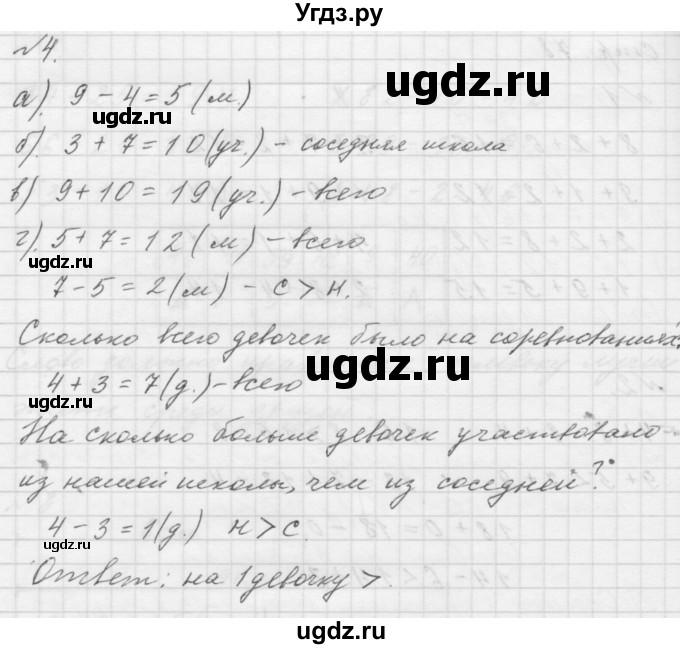 Угдз.ру
№4.
а). 9 - 4 = 5 (м)
ugdz.ru
б). 3 + 7 = 10 (уч.) - соседняя школа
в) 9 + 10 = 19 (уч.) - всего
ugdz.ru
г). 5 + 7 = 12 (м) - всего
ugdz.ru
7 - 5 = 2 (м) - С > Н.
Сколько всего девочек было на соревнованиях?
ugdz.ru
4 + 3 = 7 (д.) - всего
ugdz.ru
На сколько больше девочек участвовало
из нашей школы, чем из соседней?
ugdz.ru
4 - 3 = 1 (д.) Н > С.
ugdz.ru
Ответ: на 1 девочку >.
ugdz.ru